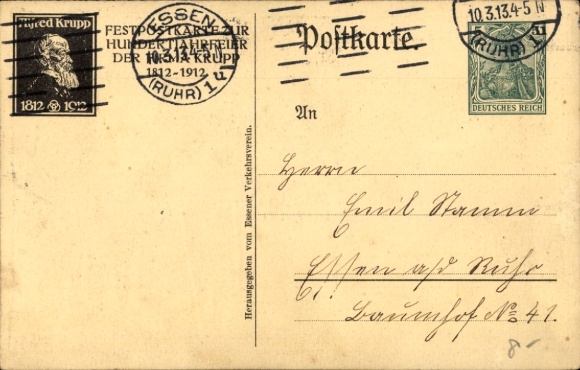 Alfred Krupp
1812 1912
FESTPOSTKARTE ZUR
HUNDERTJAHRFEIER
DER FIRMA KRUPP
1812-1912
ESSEN
10.3.13.4-5 N
(RUHR) 1u
Postkarte.
10.3.13.4-5 N
(RUHR) 1u
DEUTSCHES REICH
An
Herausgegeben vom Essener Verkehrsverein.
Herrn
Emil Stamm
Essen a/d Ruhr
Baumhof No 41.
8-